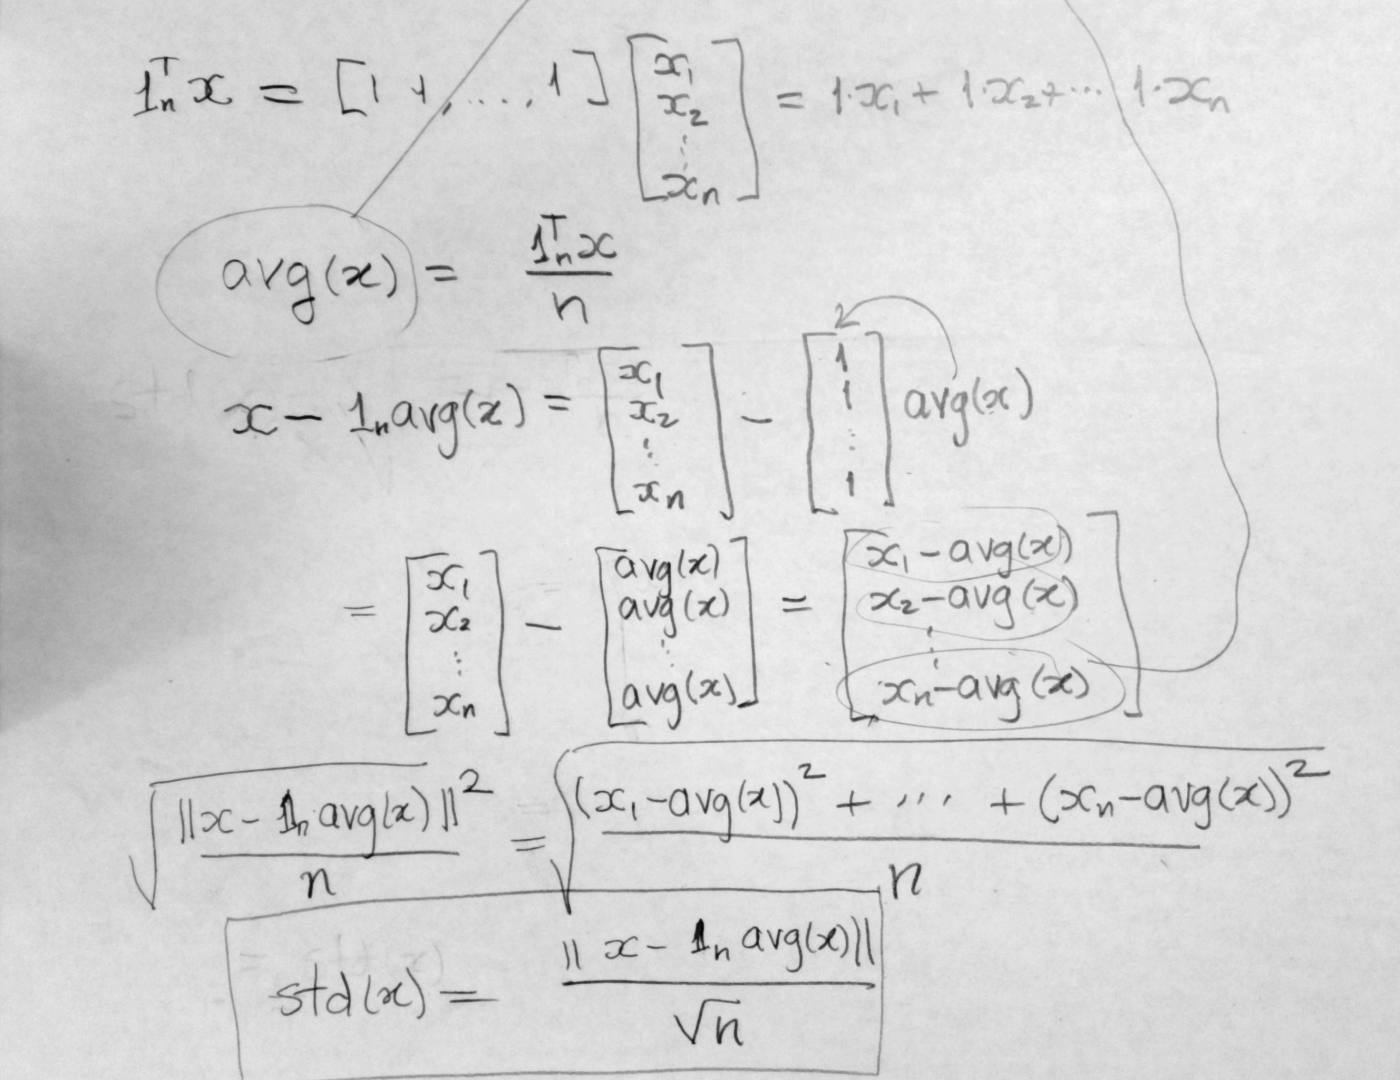 1ₙᵀx = [1 1, ...., 1] [x₁ x₂ ⋮ xₙ] = 1·x₁ + 1·x₂ + ··· 1·xₙ
avg(x) = 1ₙᵀx / n
x − 1ₙavg(x) = [x₁ x₂ ⋮ xₙ] − [1 1 ⋮ 1] avg(x)
= [x₁ x₂ ⋮ xₙ] − [avg(x) avg(x) ⋮ avg(x)] = [x₁−avg(x) x₂−avg(x) ⋮ xₙ−avg(x)]
√(||x − 1ₙavg(x)||² / n) = √((x₁−avg(x))² + ··· + (xₙ−avg(x))² / n)
std(x) = ||x − 1ₙ avg(x)|| / √n